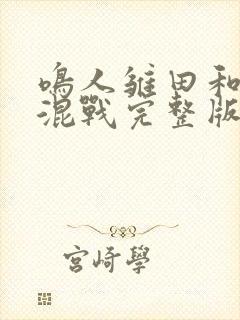 鳴人雏田和
混戰完整版
宮崎學